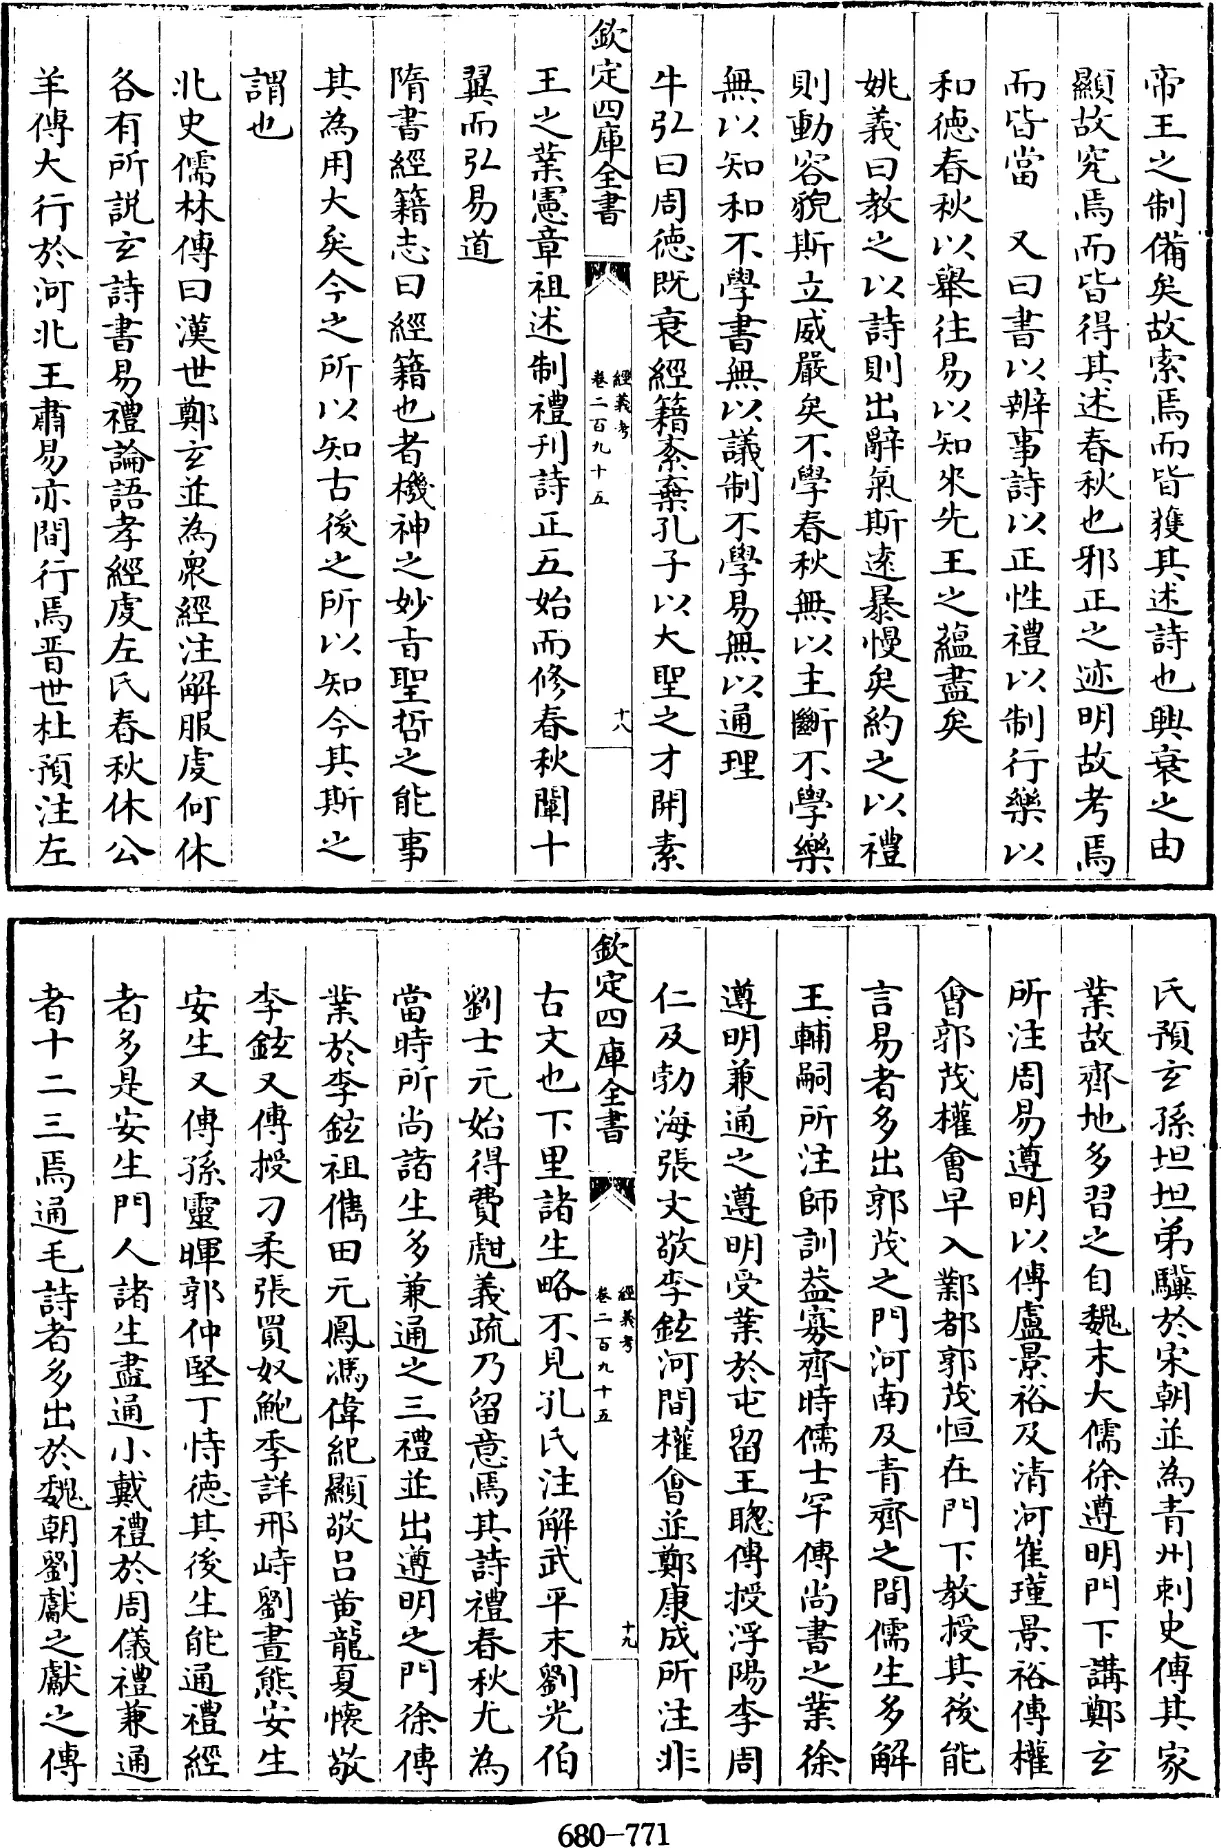 帝王之制備矣故索焉而皆獲其述詩也興衰之由
顯故究焉而皆得其述春秋也邪正之迹明故考焉
而皆當　又曰書以辨事詩以正性禮以制行樂以
和德春秋以舉往易以知來先王之蘊盡矣
姚義曰教之以詩則出辭氣斯遠暴慢矣約之以禮
則動容貌斯立威嚴矣不學春秋無以主斷不學樂
無以知和不學書無以議制不學易無以通理
牛弘曰周德既衰經籍紊棄孔子以大聖之才開素
欽定四庫全書
經義考
卷二百九十五
十八
王之業憲章祖述制禮刋詩正五始而修春秋闡十
翼而弘易道
隋書經籍志曰經籍也者機神之妙旨聖哲之能事
其為用大矣今之所以知古後之所以知今其斯之
謂也
北史儒林傳曰漢世鄭玄並為衆經注解服虔何休
各有所說玄詩書易禮論語孝經虔左氏春秋休公
羊傳大行於河北王肅易亦間行焉晉世杜預注左
氏預玄孫坦坦弟驥於宋朝並為青州刺史傳其家
業故齊地多習之自魏末大儒徐遵明門下講鄭玄
所注周易遵明以傳盧景裕及清河崔瑾景裕傳權
會郭茂權會早入鄴都郭茂恒在門下教授其後能
言易者多出郭茂之門河南及青齊之間儒生多解
王輔嗣所注師訓葢寡齊時儒士罕傳尚書之業徐
遵明兼通之遵明受業於屯留王聰傳授浮陽李周
仁及勃海張文敬李鉉河間權會並鄭康成所注非
欽定四庫全書
經義考
卷二百九十五
十九
古文也下里諸生略不見孔氏注解武平末劉光伯
劉士元始得費甝義疏乃留意焉其詩禮春秋尤為
當時所尚諸生多兼通之三禮並出遵明之門徐傳
業於李鉉祖儁田元鳳馮偉紀顯敬呂黄龍夏懷敬
李鉉又傳授刁柔張買奴鮑季詳邢峙劉晝熊安生
安生又傳孫靈暉郭仲堅丁恃德其後生能通禮經
者多是安生門人諸生盡通小戴禮於周儀禮兼通
者十二三焉通毛詩者多出於魏朝劉獻之獻之傳
680-771